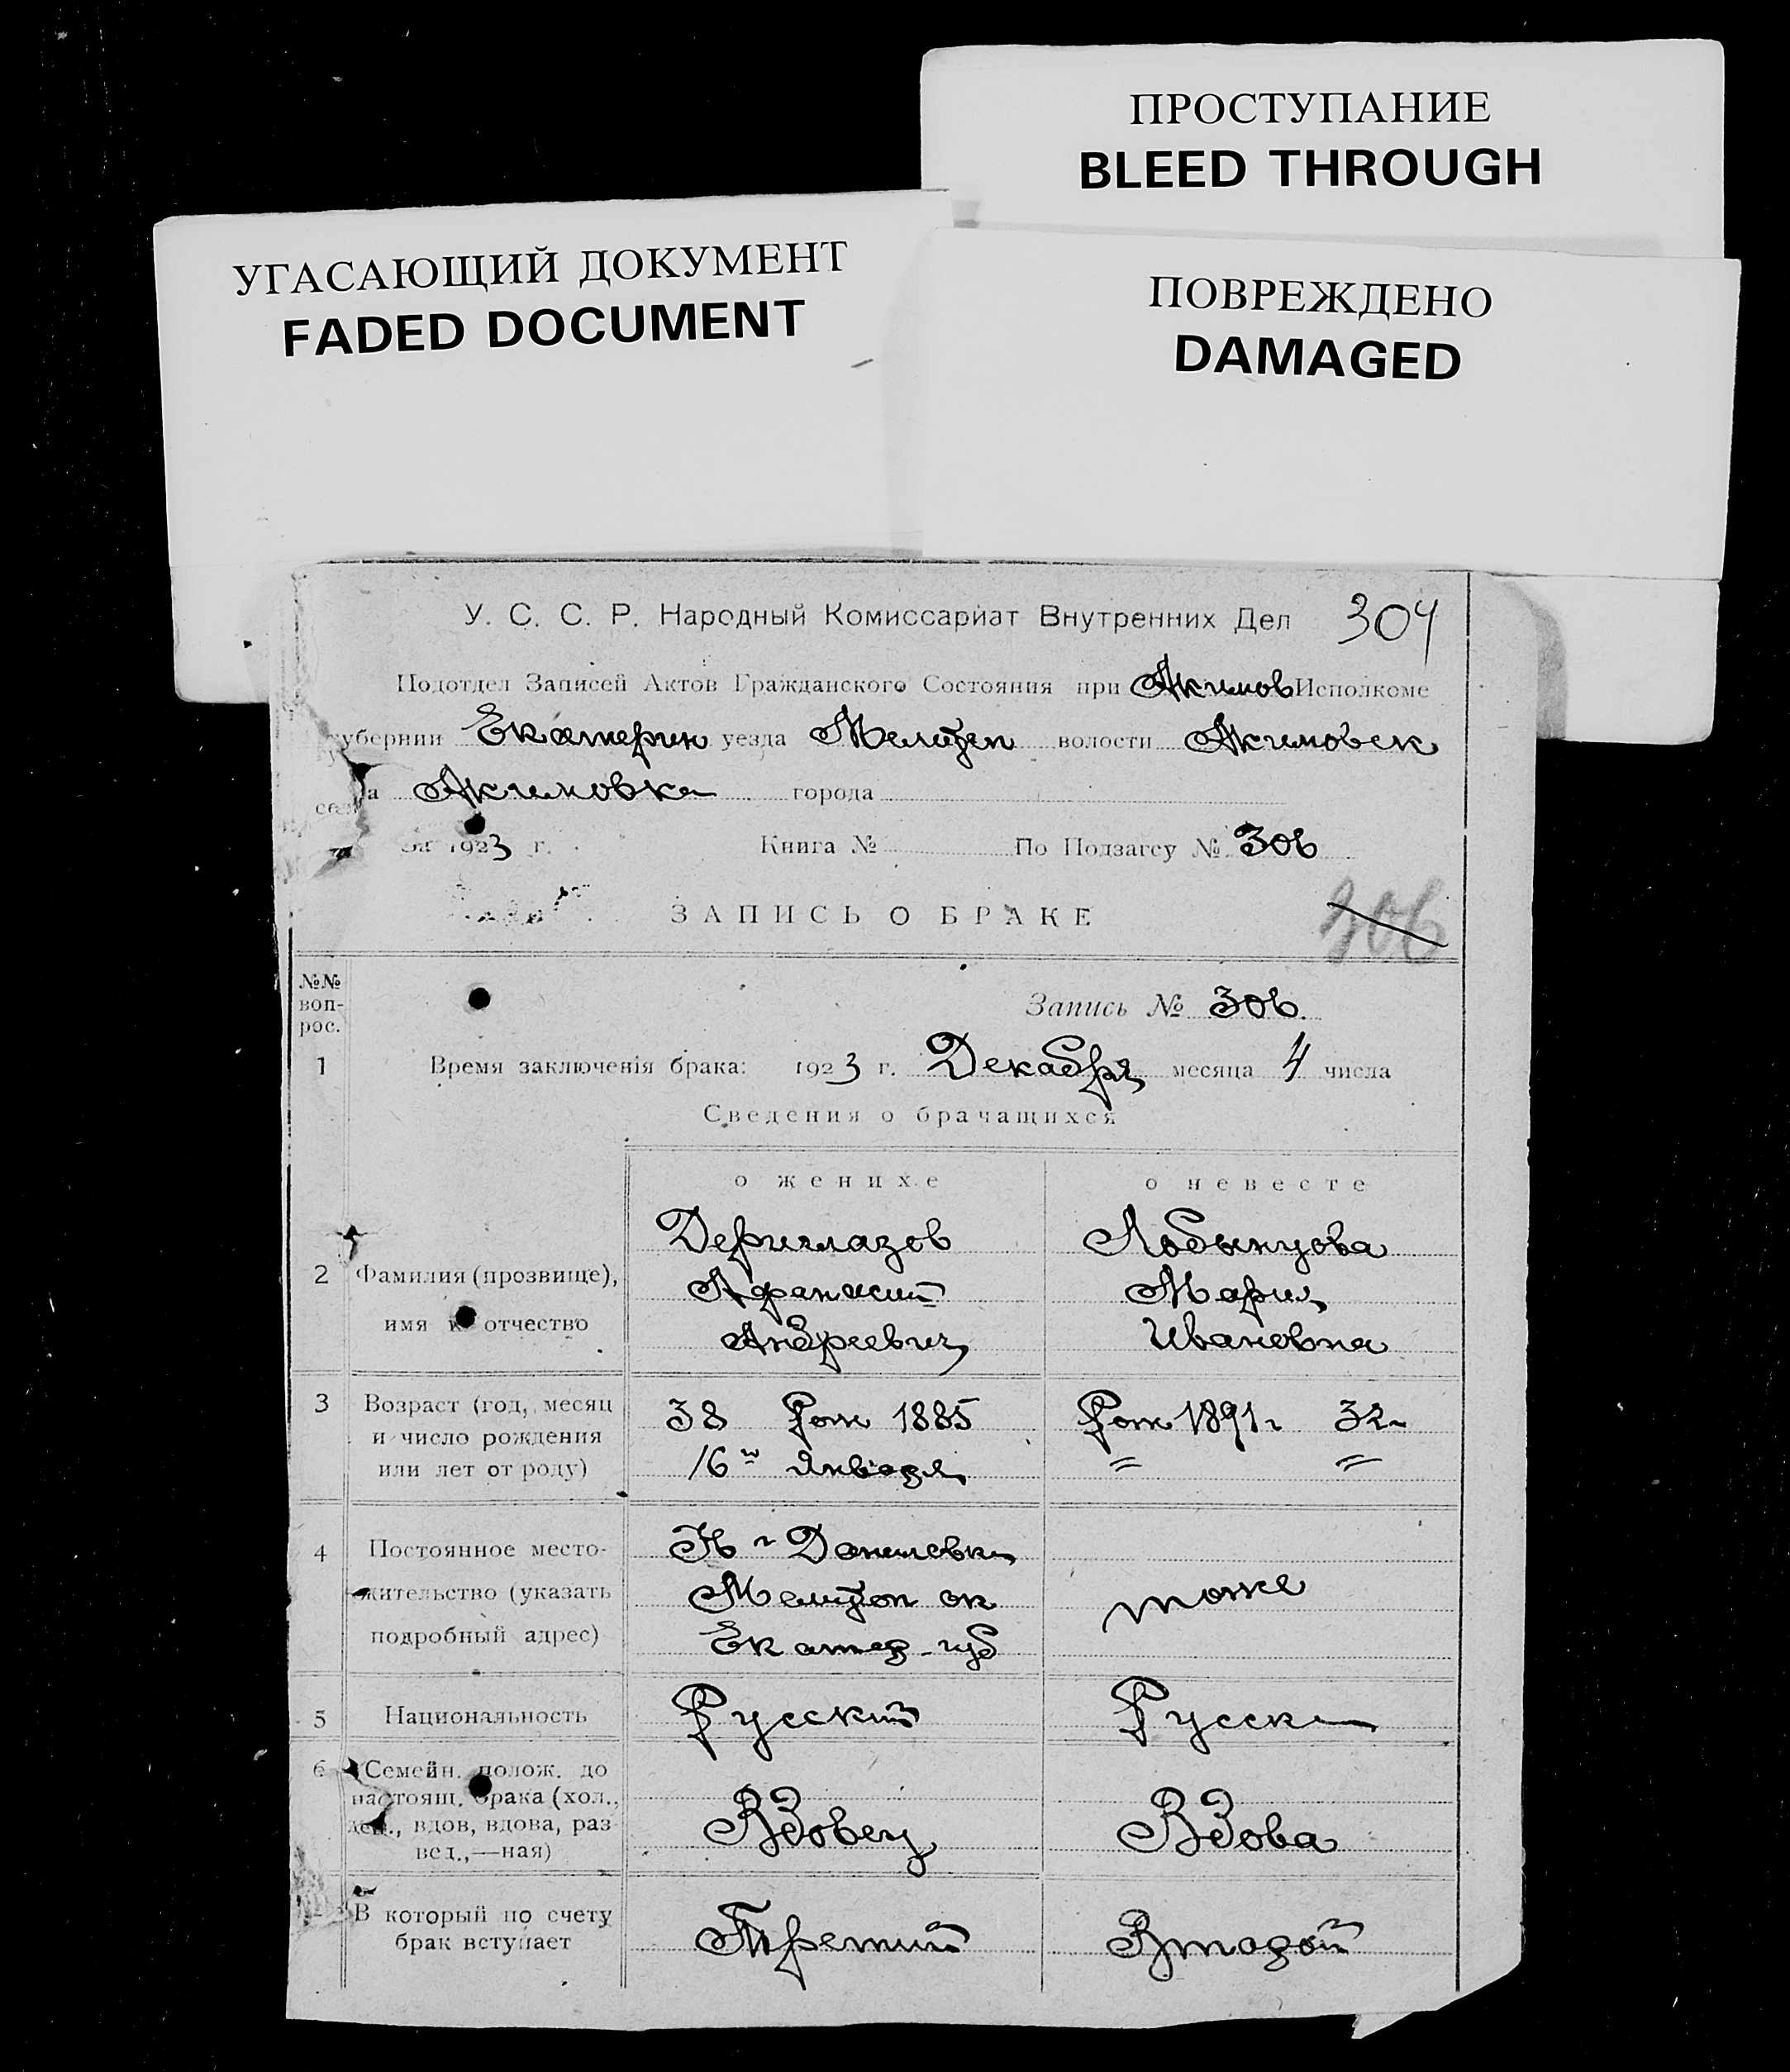 ПРОСТУПАНИЕ
BLEED THROUGH
УГАСАЮЩИЙ ДОКУМЕНТ
FADED DOCUMENT
ПОВРЕЖДЕНО
DAMAGED
У. С. С. Р. Народный Комиссариат Внутренних Дел 304
Подотдел Записей Актов Гражданского Состояния при Акимов Исполкоме
губернии Екатерин уезда Мелитоп волости Акимовск
села Акимовка города
За 1923 г. Книга № По Подзагсу № 306
ЗАПИСЬ О БРАКЕ 306
№№ воп- рос.
Запись № 306.
1 Время заключенія брака: 1923 г. Декабря месяца 4 числа
Сведения о брачащихся
о женихе о невесте
Дериглазов Лобынцова
2 Фамилия (прозвище), Афанасий Мария
имя и отчество Андреевич Ивановна
3 Возраст (год, месяц 38 рож 1885 рож 1891 г 32
и число рождения
или лет от роду) 16го Января = =
4 Постоянное место- Н Даниловка
жительство (указать Мелитоп ок тоже
подробный адрес) Екатер губ
5 Национальность Русский Русская
6 Семейн. полож. до
настоящ. брака (хол.,
дев., вдов, вдова, раз Вдовец Вдова
вед.,—ная)
В который по счету
брак вступает Третий Второй